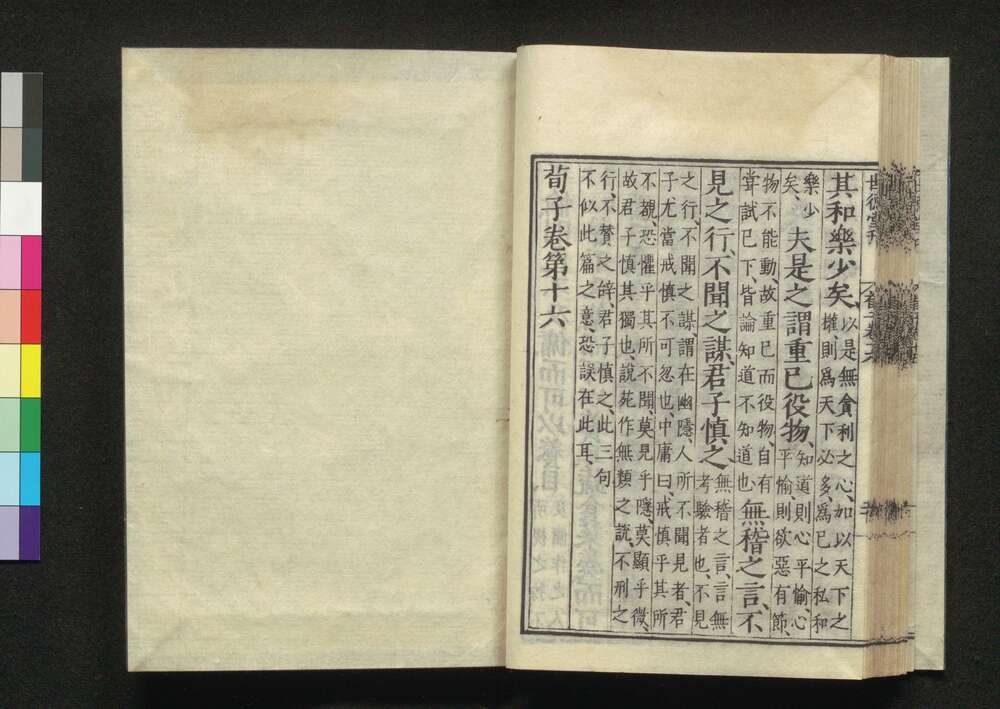 世德堂刊
其和樂少矣、
以是無貪利之心、加以天下之
權、則爲天下必多、爲已之私和
樂少
矣、
夫是之謂重已役物、
知道則心平愉、心
平愉、則欲惡有節、
物不能動、故重已而役物、自有
甞試已下、皆論知道不知道也
無稽之言、不
見之行、不聞之謀、君子慎之、
無稽之言、言無
考驗者也、不見
之行、不聞之謀、謂在幽隱、人所不聞見者、君
子尤當戒慎不可忽也、中庸曰、戒慎乎其所
不覩、恐懼乎其所不聞、莫見乎隱、莫顯乎微、
故君子慎其獨也、說苑作無類之說、不刑之
行、不賛之辭、君子慎之、此三句
不似此篇之意、恐誤在此耳、
荀子卷第十六